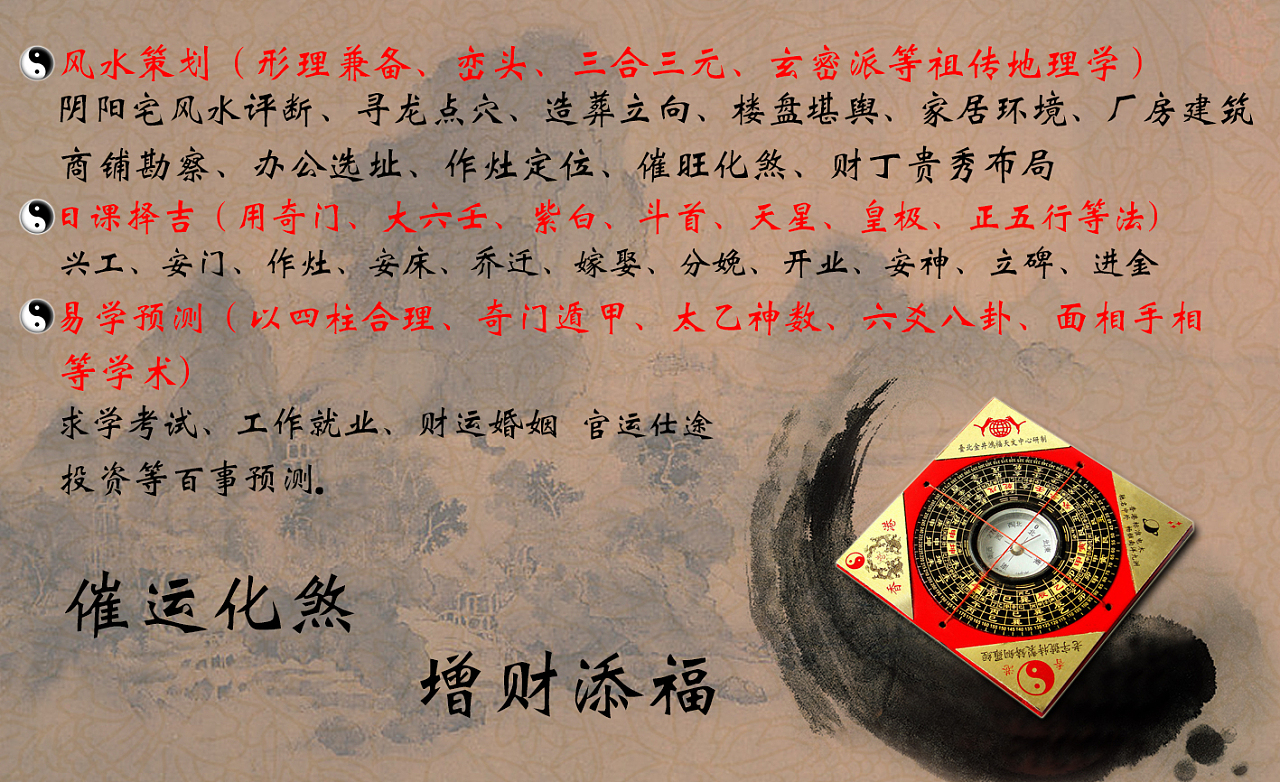 风水策划（形理兼备、峦头、三合三元、玄密派等祖传地理学）
阴阳宅风水评断、寻龙点穴、造葬立向、楼盘堪舆、家居环境、厂房建筑
商铺勘察、办公选址、作灶定位、催旺化煞、财丁贵秀布局
日课择吉（用奇门、大六壬、紫白、斗首、天星、皇极、正五行等法）
兴工、安门、作灶、安床、乔迁、嫁娶、分娩、开业、安神、立碑、进金
易学预测（以四柱合理、奇门遁甲、太乙神数、六爻八卦、面相手相
等学术）
求学考试、工作就业、财运婚姻 官运仕途
投资等百事预测。
催运化煞
增财添福
香港
香港